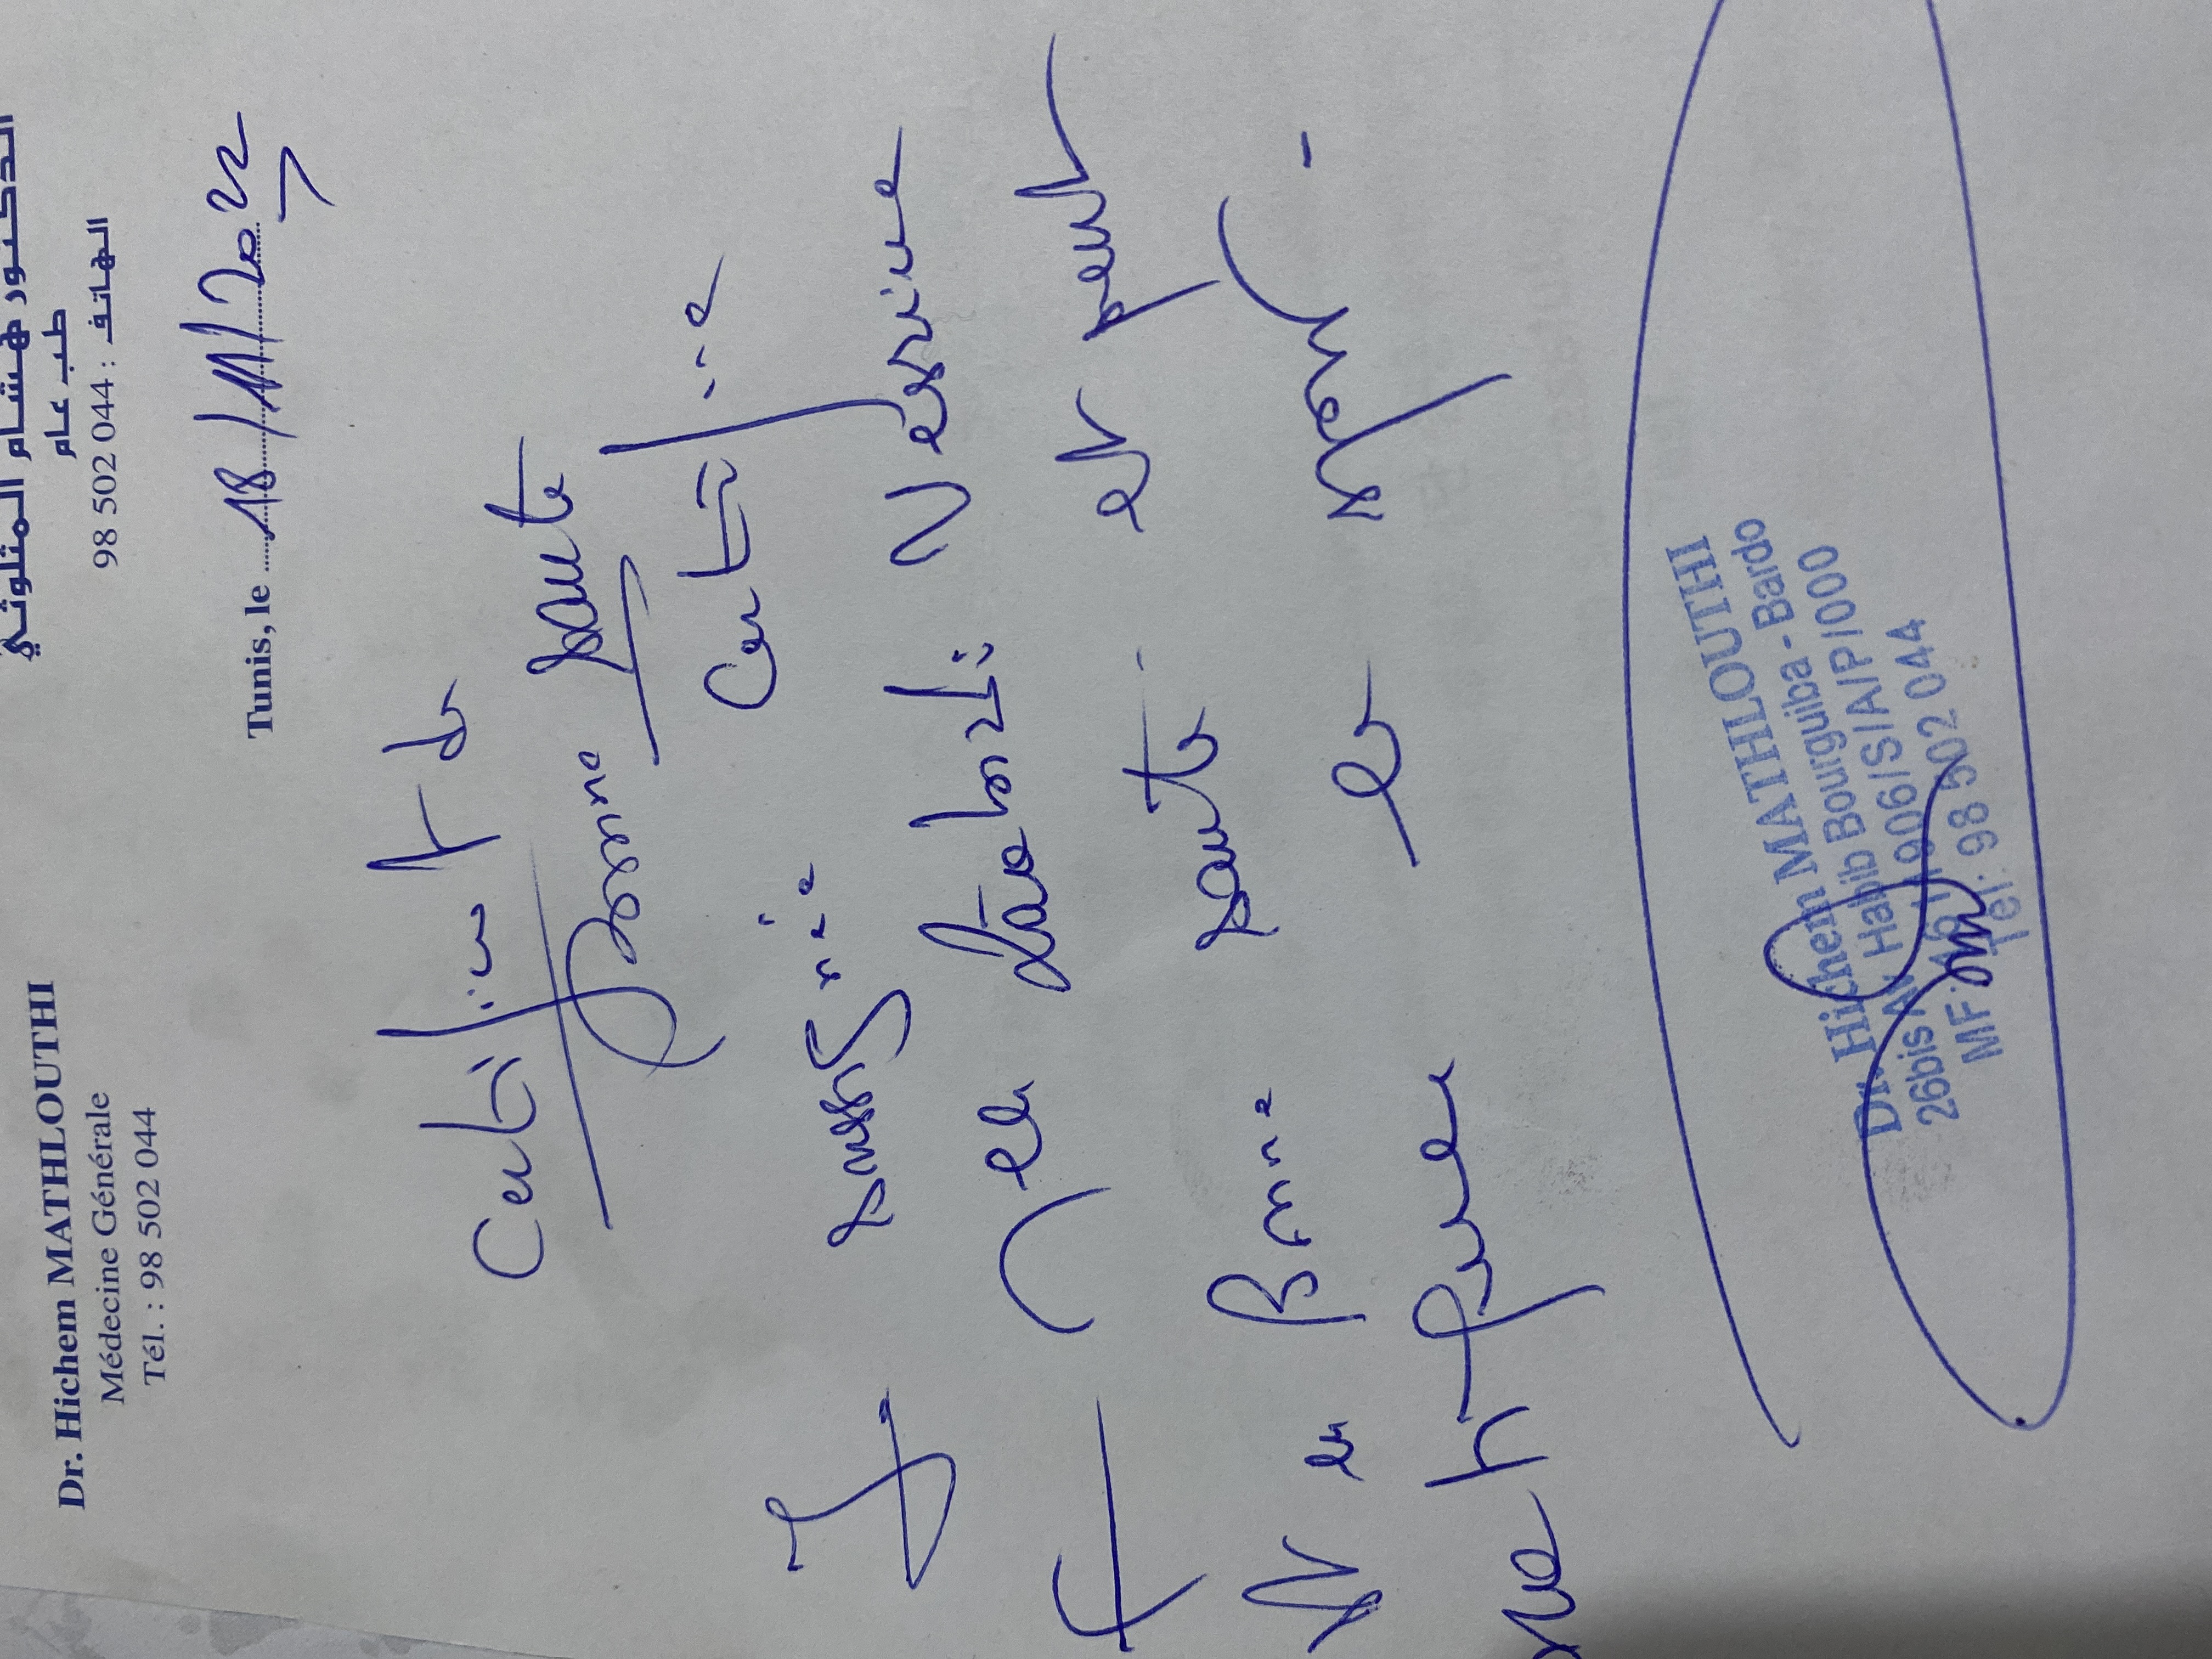 Dr. Hichem MATHLOUTHI
Médecine Générale
Tél. : 98 502 044
الدكتور هشام المثلوثي
طب عام
الهاتف : 98 502 044
Tunis, le 18/11/2022
Certificat de
bonne sante
Je soussigné certifie
Nesrine
est en Bonne sante et peut
le sport
Dr. Hichem MATHLOUTHI
26bis Av Habib Bourguiba - Bardo
MF: /S/A/P/000
Tel: 98 502 044